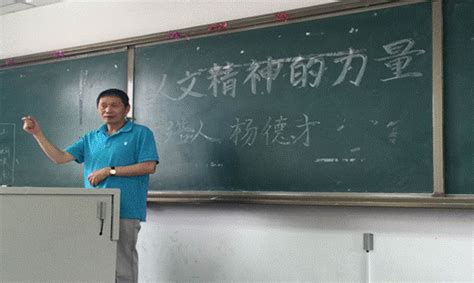 人文精神的力量
人 杨德才